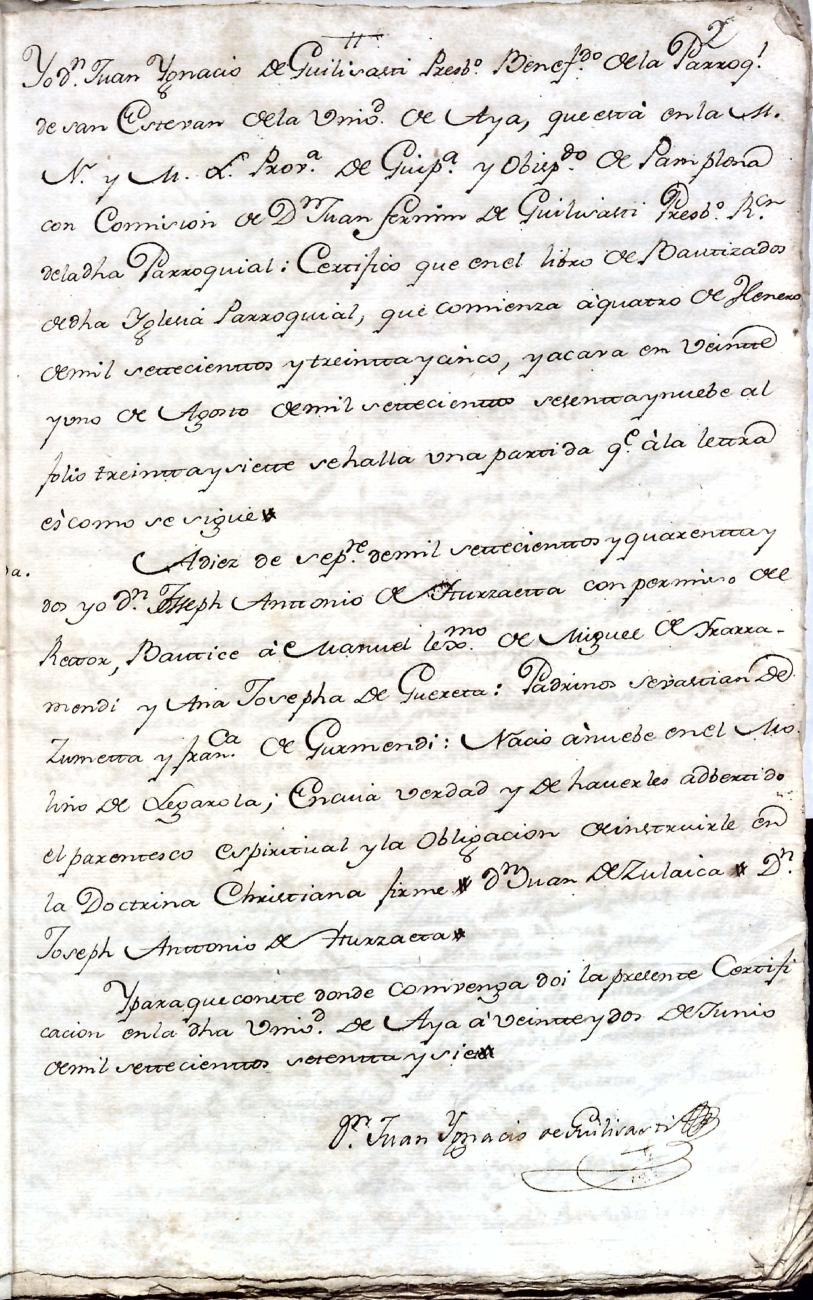 2
Yo dn. Juan Ygnacio de Guilisasti Presbo. Benefdo. de la Parroql.
de san Estevan dela Vniod. de Aya, que està en la M.
N. y M. L. Prova. de Guipa. y Obispdo. de Pamplona
con Comision de Dn. Juan fermin de Guilisasti Presbo. Rcn
deladha Parroquial: Certifico que en el libro de Bautizados
de dha Yglesia Parroquial, que comienza à quatro de Henero
de mil settecienttos y treintta y cinco, y acava en veintte
y uno de Agosto de mil settecientto sesentta y nuebe al
folio treintta y siette se halla una partida qe. à la lettra
es como se sigue
da.
A diez de sepre. de mil settecienttos y quarentta y
dos yo dn. Joseph Anttonio de Yturzaetta con permiso del
Rector, Bautice à Manuel lexmo. de Miguel de Yrarra-
mendi y Ana Josepha de Guereta: Padrinos sevastian de
Zumetta y franca. de Gurmendi: Nacio à nuebe en el Mo-
lino de Legarola; En cuia verdad y de haverles adbertido
el parentesco espiritual y la Obligacion de instruirle en
la Doctrina Christiana firme dn Juan de Zulaica Dn.
Joseph Anttonio de Yturzaeta
Y para que conste donde convenga doi la presente Certifi
cacion en la dha Vniod. de Aya à veintte y dos de Junio
de mil settecienttos setentta y siete
Dn. Juan Ygnacio de Guilisasti